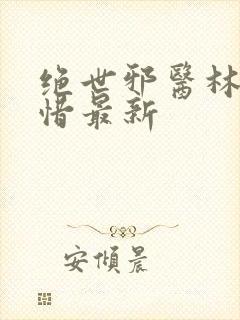 绝世邪醫林
惜最新
安傾晨